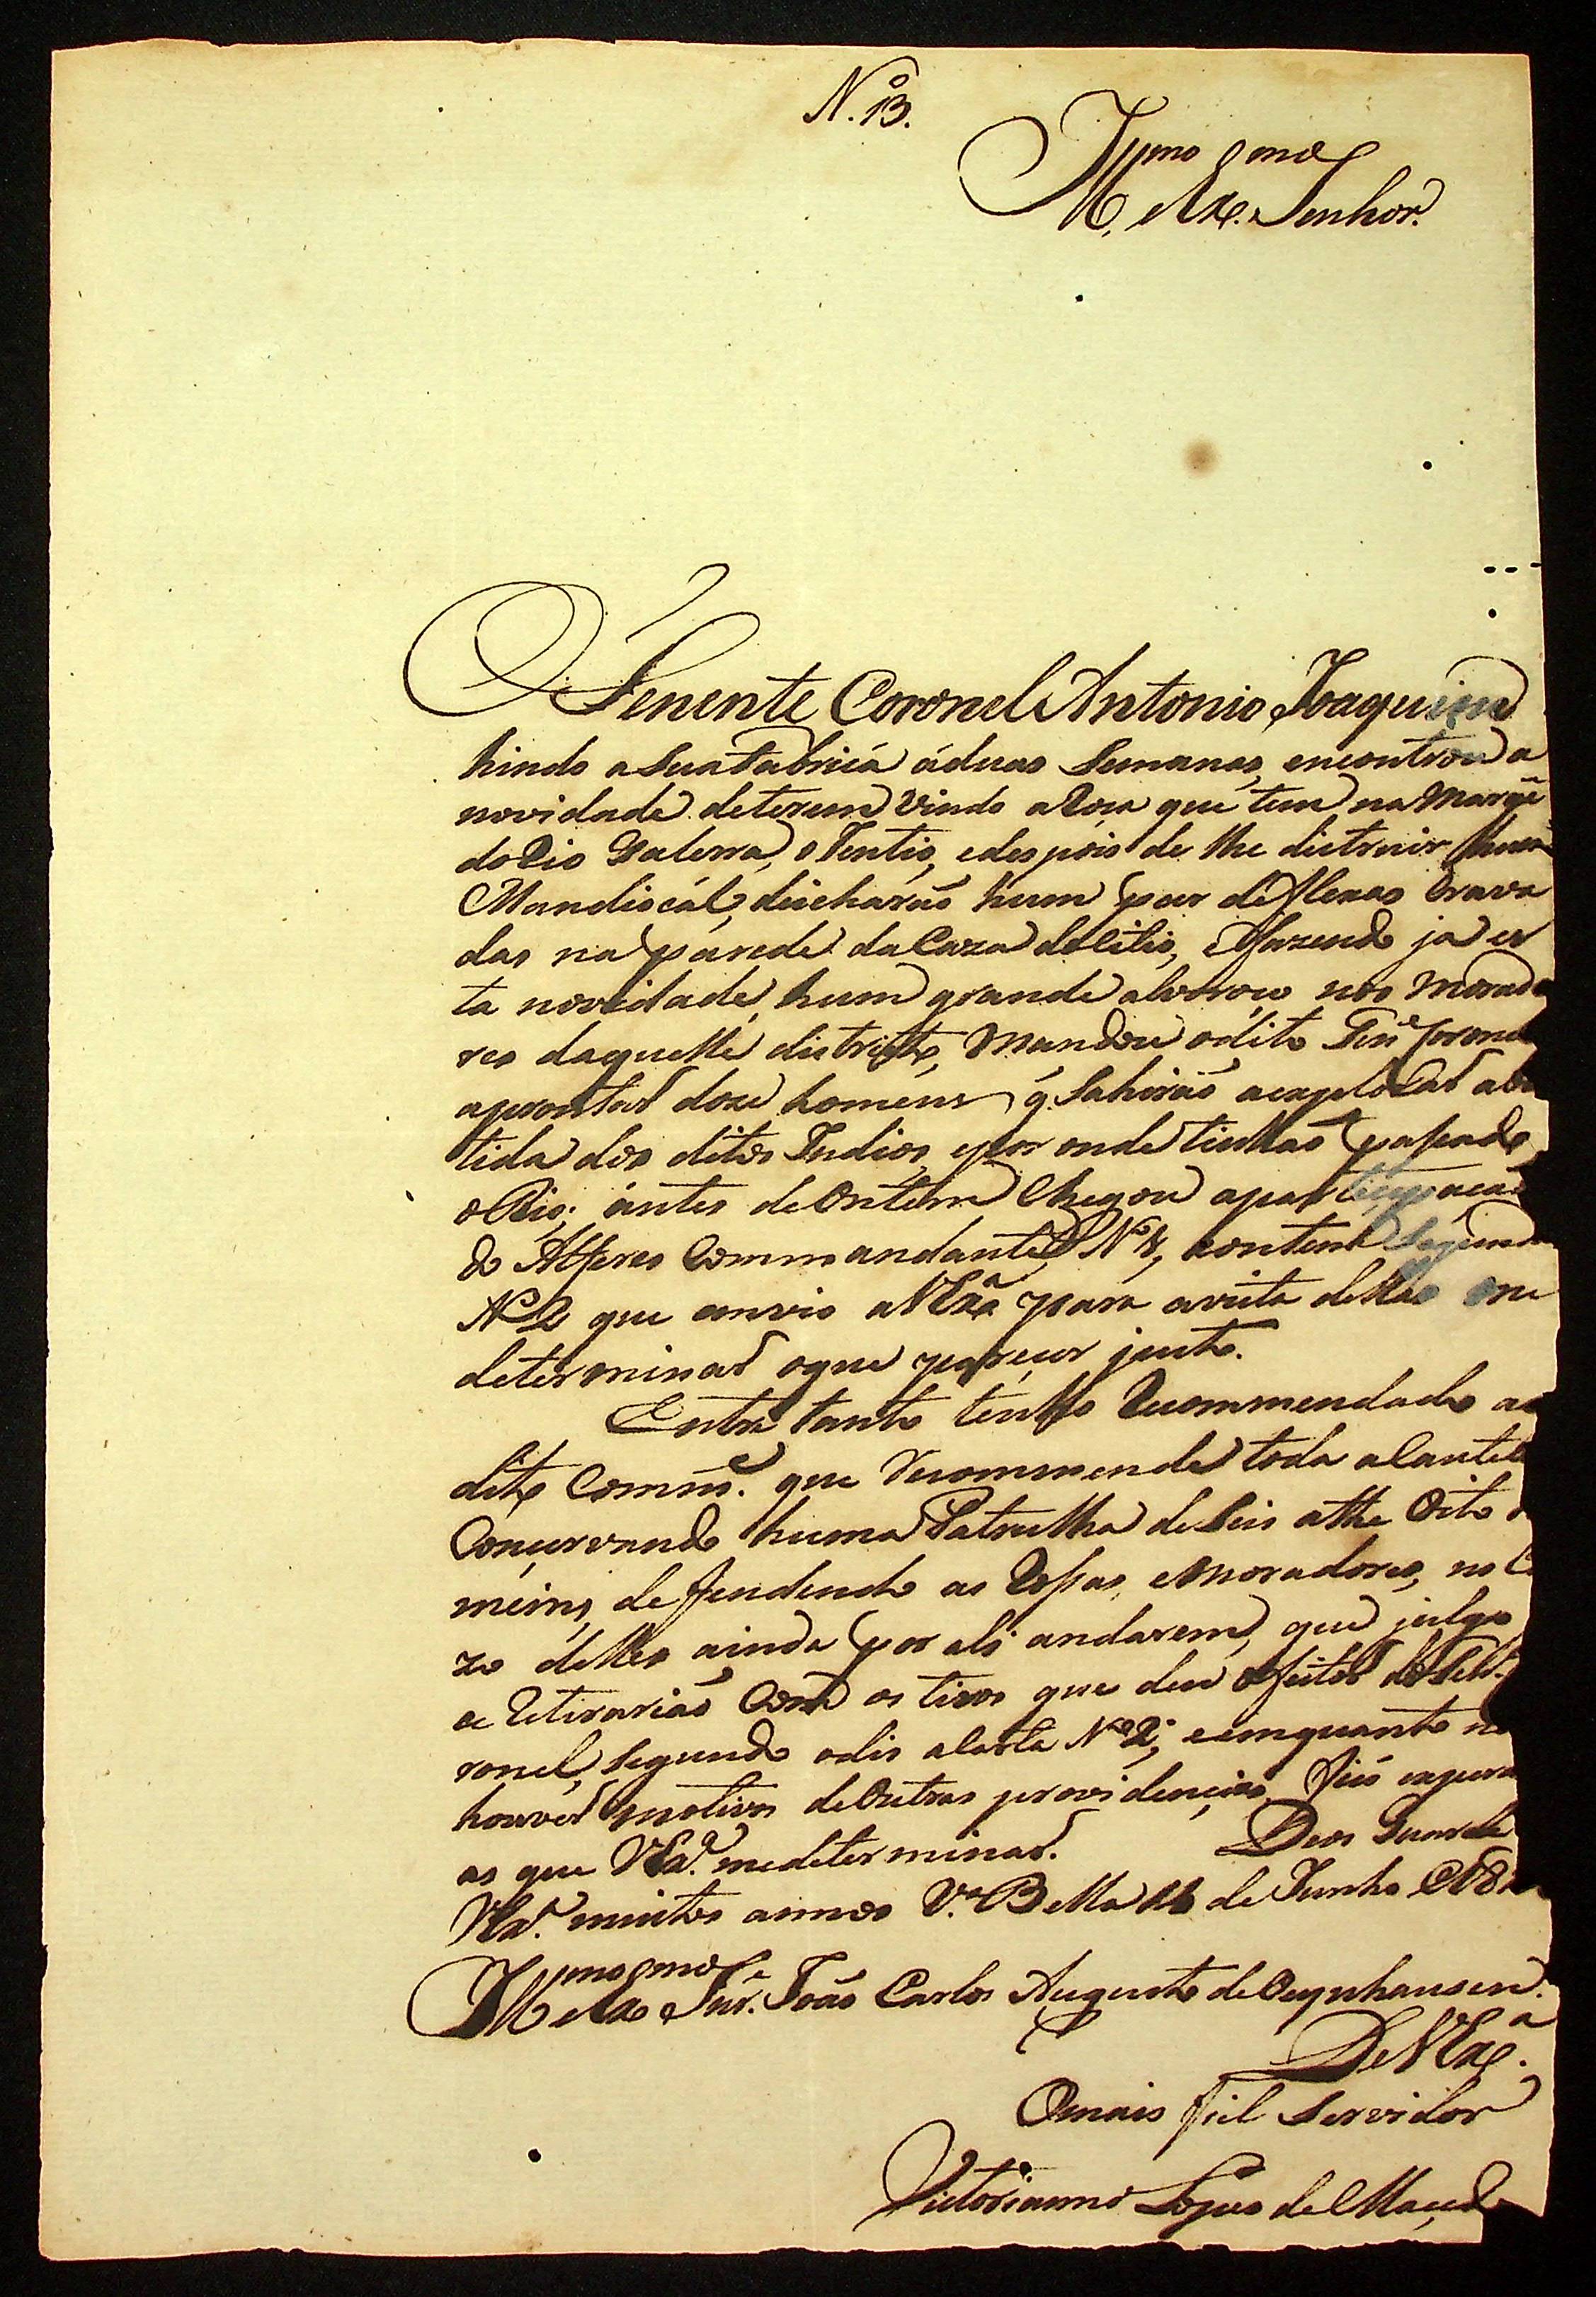 N.º 13.
Illmo e Exmo Senhor.
O Tenente Coronel Antonio Joaquim
hindo a Sua fabrica á duas Semanas, encontrou a
novidade de terem Vindo a Roça que tem na Marge
do Rio Galerra, o Gentio, e despois de lhe distruir hum
Mandiocal, deicharão hum par de flexas Crava
das na parede da Caza do Citio, e fazendo ja es
ta novidade, hum grande alvoroço nos Morado
res daquelle distrito, Mandou o dito Tene Corone
aprontar doze homens q Sahirão a explorar a ba
tida dos ditos Indios, e por onde tinhão passado
o Rio; ántes de Ontem Chegou a participacaõ
do Alferes Commandante Nº 1, e ontem Segunda
Nº 2 que envio a VExa para avista dellas me
determinar o que pareçer justo.
Entre tanto tenho Recommendado ao
dito Comme. que recommende toda a Cautel
Conçervando huma Patrulha de Seis athe Oito ho
meins, defendendo as Rossas, e Moradores, no Ca
zo delles ainda por ali andarem, que julgo
se Retirarião Com os tiros que deu o feitor do Te Co
ronel, Segundo o dis a Carta Nº 2; e emquanto não
houver motivos de Outras providençias, fico espera
as que VExa. me determinar. Deos Guarde
VExa. muitos annos Vª Bella 11 de Junho de 18
Illmo e Exmo Snr. João Carlos Augusto de Oeynhausen.
De VExa.
O mais fiel Servidor
Victorianno Lopes de Maçedo